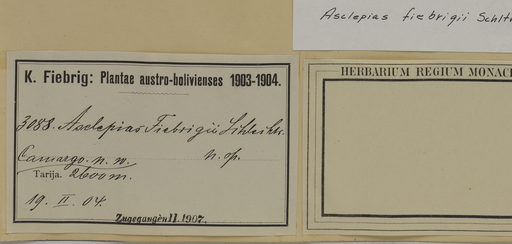 Asclepias fiebrigii Schlt
HERBARIUM REGIUM MONAC
K. Fiebrig: Plantae austro-bolivienses 1903-1904.
3088. Asclepias Fiebrigii Schlechtr.
n. sp.
Camargo. n. w.
Tarija. 2600 m.
19. II. 04.
Zugegangen 11. 1907.